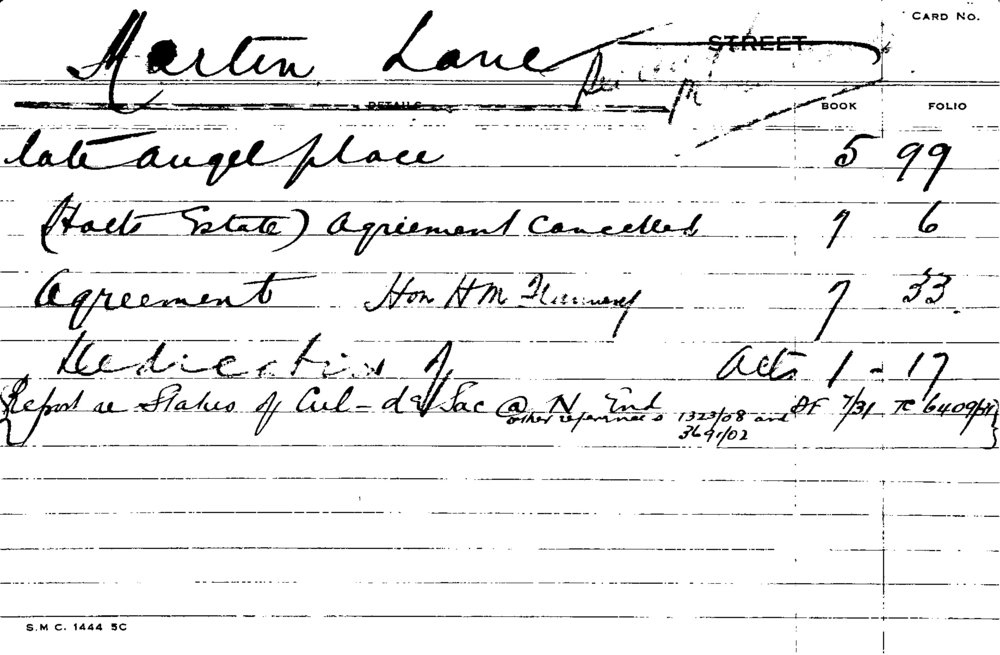 CARD No.
Martin Lane STREET
DETAILS BOOK FOLIO
late Angel place 5 99
(Holts Estate) Agreement Cancelled 7 6
Agreement Hon H M 7 33
Dedication of Acts 1 - 17
Report re Status of Cul-de-Sac @ N End DF 7/31 TC 6409/
other references 1323/08 and
3691/02
S.M C. 1444 5C